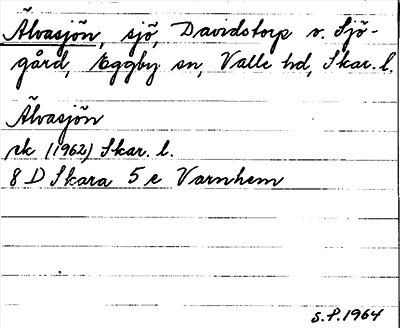 Älvasjön, sjö, Davidstorp o. Sjö-
gård, Eggby sn, Valle hd, Skar. l.
Älvasjön
ek (1962) Skar. l.
8 D Skara 5 e Varnhem
S.P. 1964